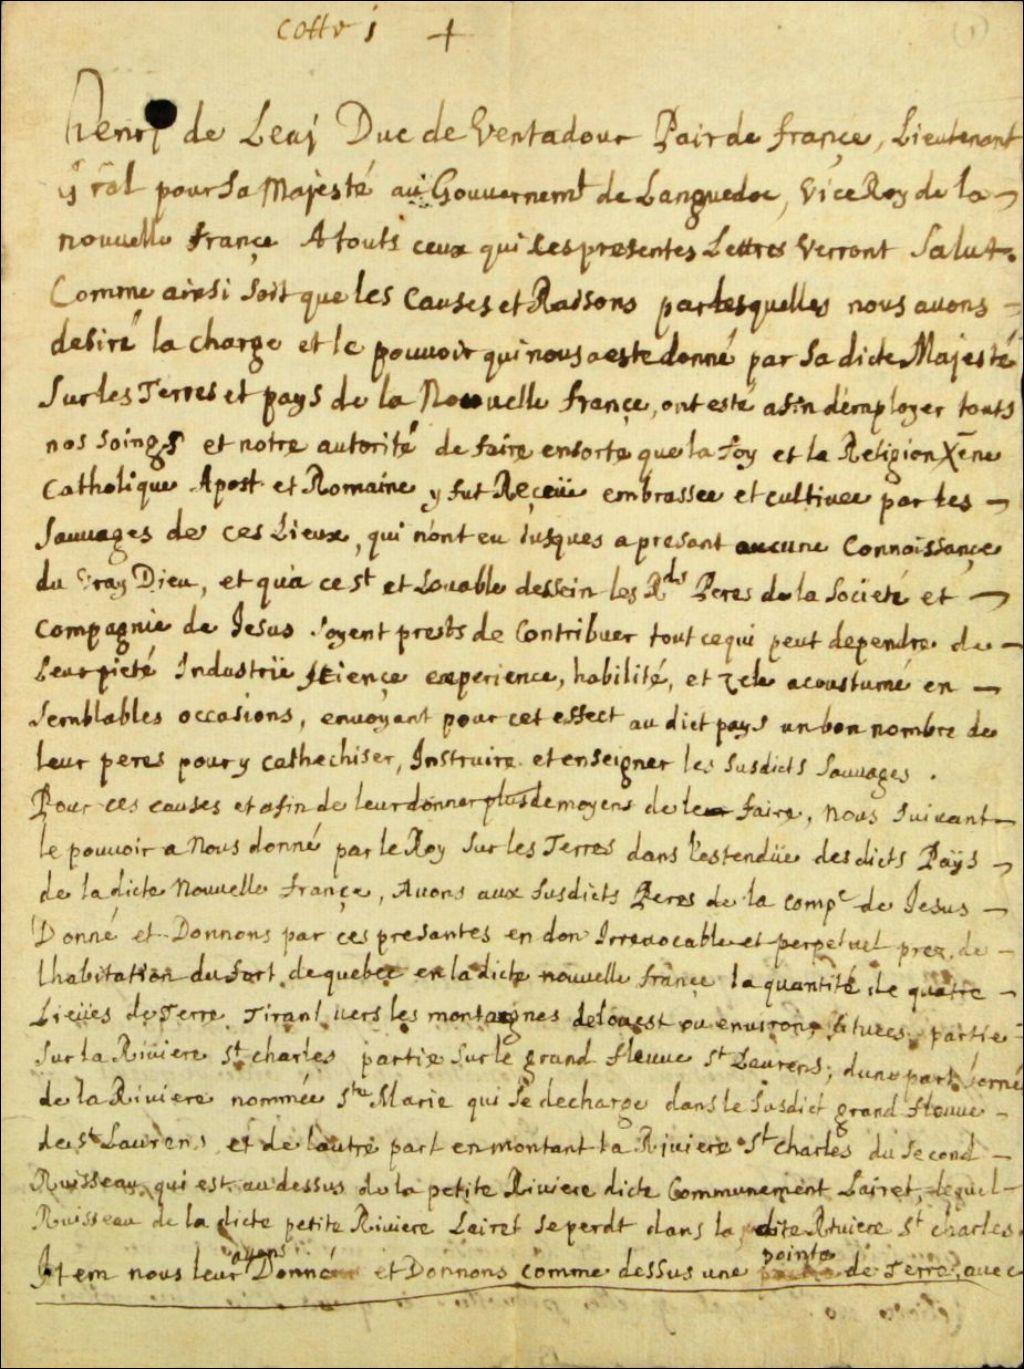 Cotte j +
Henry de Levj Duc de Ventadour Pair de françe, Lieutenant
gñral pour Sa Majesté au Gouvernemt de Languedoc, ViceRoy de la
nouuelle françe A touts ceux qui ces presentes Lettres Verront Salut.
Comme ainsi soit que les Causes et Raisons par lesquelles nous auons
desiré la charge et le pouuoir qui nous a este donné par Sa dicte Majesté
Sur les Terres et pays de la Nouuelle françe, ont esté afin d'employer touts
nos soings et notre autorité de faire ensorte que la foy et la Religion Xēne
Catholique Apost et Romaine y fut Reçeüe embrassee et cultiuee par les
Sauuages de ces Lieux, qui n'ont eu Jusques a presant aucune Connoissançe
du Vray Dieu, et qu'a ce st et Louable dessein les Rds Peres de la Societé et
Compagnie de Jesus soyent prests de Contribuer tout cequi peut dependre de
Leur pieté Industrie sçiençe experience, habilité, et zele acoustumé en
Semblables occasions, enuoyant pour cet effect au dict pays un bon nombre de
leur peres pour y cathechiser, Instruire et enseigner les susdicts Sauuages.
Pour ces causes et afin de leur donner plus de moyens de le faire, Nous suiuant
le pouuoir a Nous donné par le Roy sur les Terres dans l'estendüe des dicts Païs
de la dicte Nouuelle françe, Auons aux susdicts Peres de la compe de Jesus
Donné et Donnons par ces presantes en don Irreuocable et perpetuel prez de
Lhabitation du fort de quebec en la dicte nouuelle françe la quantité de quatre
Lieües de Terre Tirant uers les montagnes de l'ouest ou enuirons situees partie
sur la Riuiere St charles partie sur le grand fleuue St Laurens; d'une part borné
de la Riuiere nommée Ste Marie qui se decharge dans le susdict grand fleuue
de St Laurens et de l'autre part en montant la Riuiere St charles du second
Ruisseau qui est au dessus de la petite Riuiere dicte Communement Lairet, lequel
Ruisseau de la dicte petite Riuiere Lairet se perdt dans la dite Riuiere St charles.
Item nous leur auons Donné et Donnons comme dessus une pointe de Terre, auec